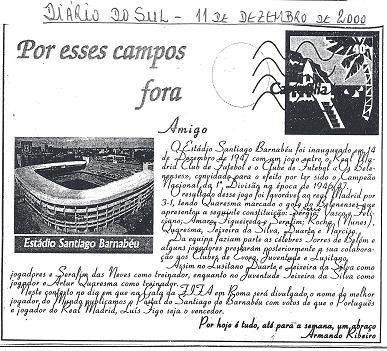 DIÁRIO DO SUL - 11 DE DEZEMBRO DE 2000
Por esses campos
fora
Amigo
O Estádio Santiago Barnabéu foi inaugurado em 14
de Dezembro de 1947 com um jogo entre o Real Ma-
drid Club de Futebol e o Clube de Futebol Os Bele-
nenses, convidado para o efeito por ter sido o Campeão
Nacional da 1ª Divisão na época de 1946/47.
O resultado desse jogo foi favorável ao real Madrid por
3-1, tendo Quaresma marcado o golo do Belenenses que
apresentou a seguinte constituição: Sério; Vasco e Feli-
ciano; Amaro, Figueiredo e Serafim; Rocha, (Nunes),
Quaresma, Teixeira da Silva, Duarte e Narciso.
Da equipa faziam parte as célebres Torres de Belém e
alguns jogadores prestaram posteriormente a sua colabora-
ção aos Clubes de Évora, Juventude e Lusitano.
Assim no Lusitano Duarte e Teixeira da Silva como
jogadores e Serafim das Neves como treinador, enquanto no Juventude Teixeira da Silva como
jogador e Artur Quaresma como treinador.
Neste contexto no dia em que na Gala da FIFA em Roma será divulgado o nome do melhor
jogador do Mundo publicamos o Postal do Santiago de Barnabéu com votos de que o Português
e jogador do Real Madrid, Luís Figo seja o vencedor.
Por hoje é tudo, até para a semana, um abraço
Armando Ribeiro
Estádio Santiago Barnabéu